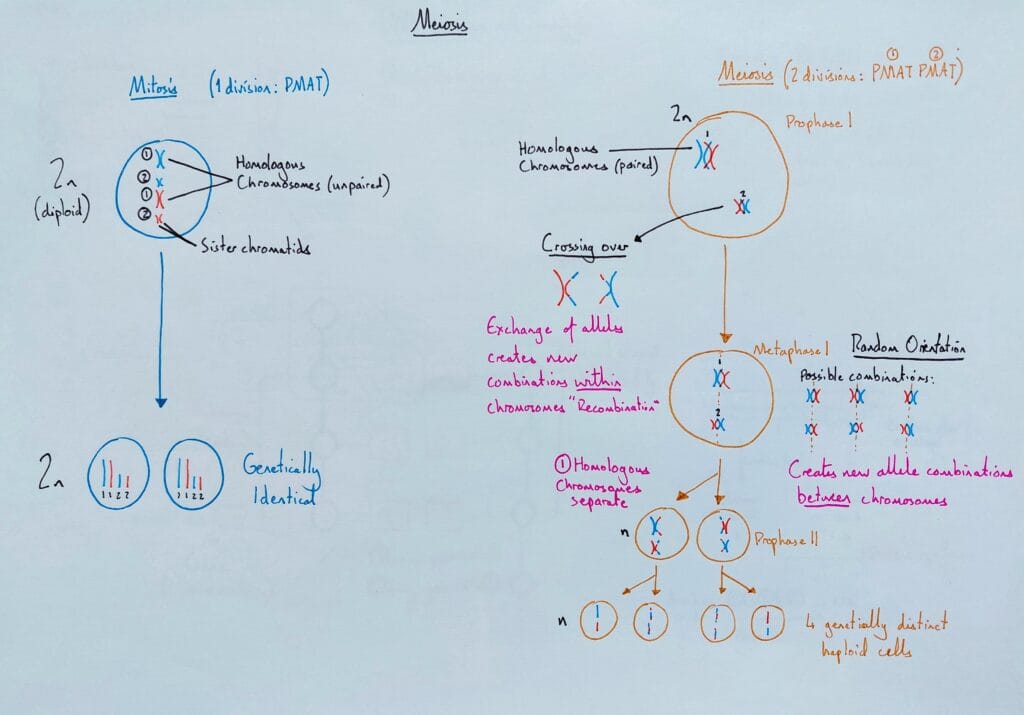 Meiosis
Mitosis (1 division: PMAT)
2n
(diploid)
1
2
1
2
Homologous
Chromosomes (unpaired)
Sister chromatids
2n
1 1 2 2
1 1 2 2
Genetically
Identical
Meiosis (2 divisions: PMAT PMAT)
1
2
2n
Prophase I
1
2
Homologous
Chromosomes (paired)
Crossing over
Exchange of alleles
creates new
combinations within
chromosomes "Recombination"
Metaphase I
1
2
Random Orientation
Possible combinations:
Creates new allele combinations
between chromosomes
1 Homologous
Chromosomes
separate
n
Prophase II
n
4 genetially distinct
haploid cells